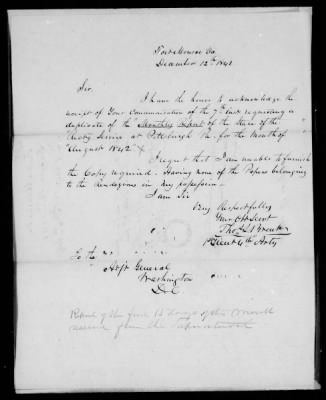 Fort Monroe Va
December 12th 1842
Sir.
I have the honor to acknowledge the
receipt of Your Communication of the 7th inst requiring a
duplicate of the "Monthly Report of the State of the
Rectg Service at Pittsburgh Pa. for the Month of
"August 1842"
I regret that I am unable to furnish
the Copy required. Having none of the Papers belonging
to the Rendezvous in my possession.
I am Sir
Very Respectfully
Your Obt Servt
Tho. L.
1st Lieut 4th Arty
To the
Adjt General
Washington
D.C.
of the
from the Superintendent